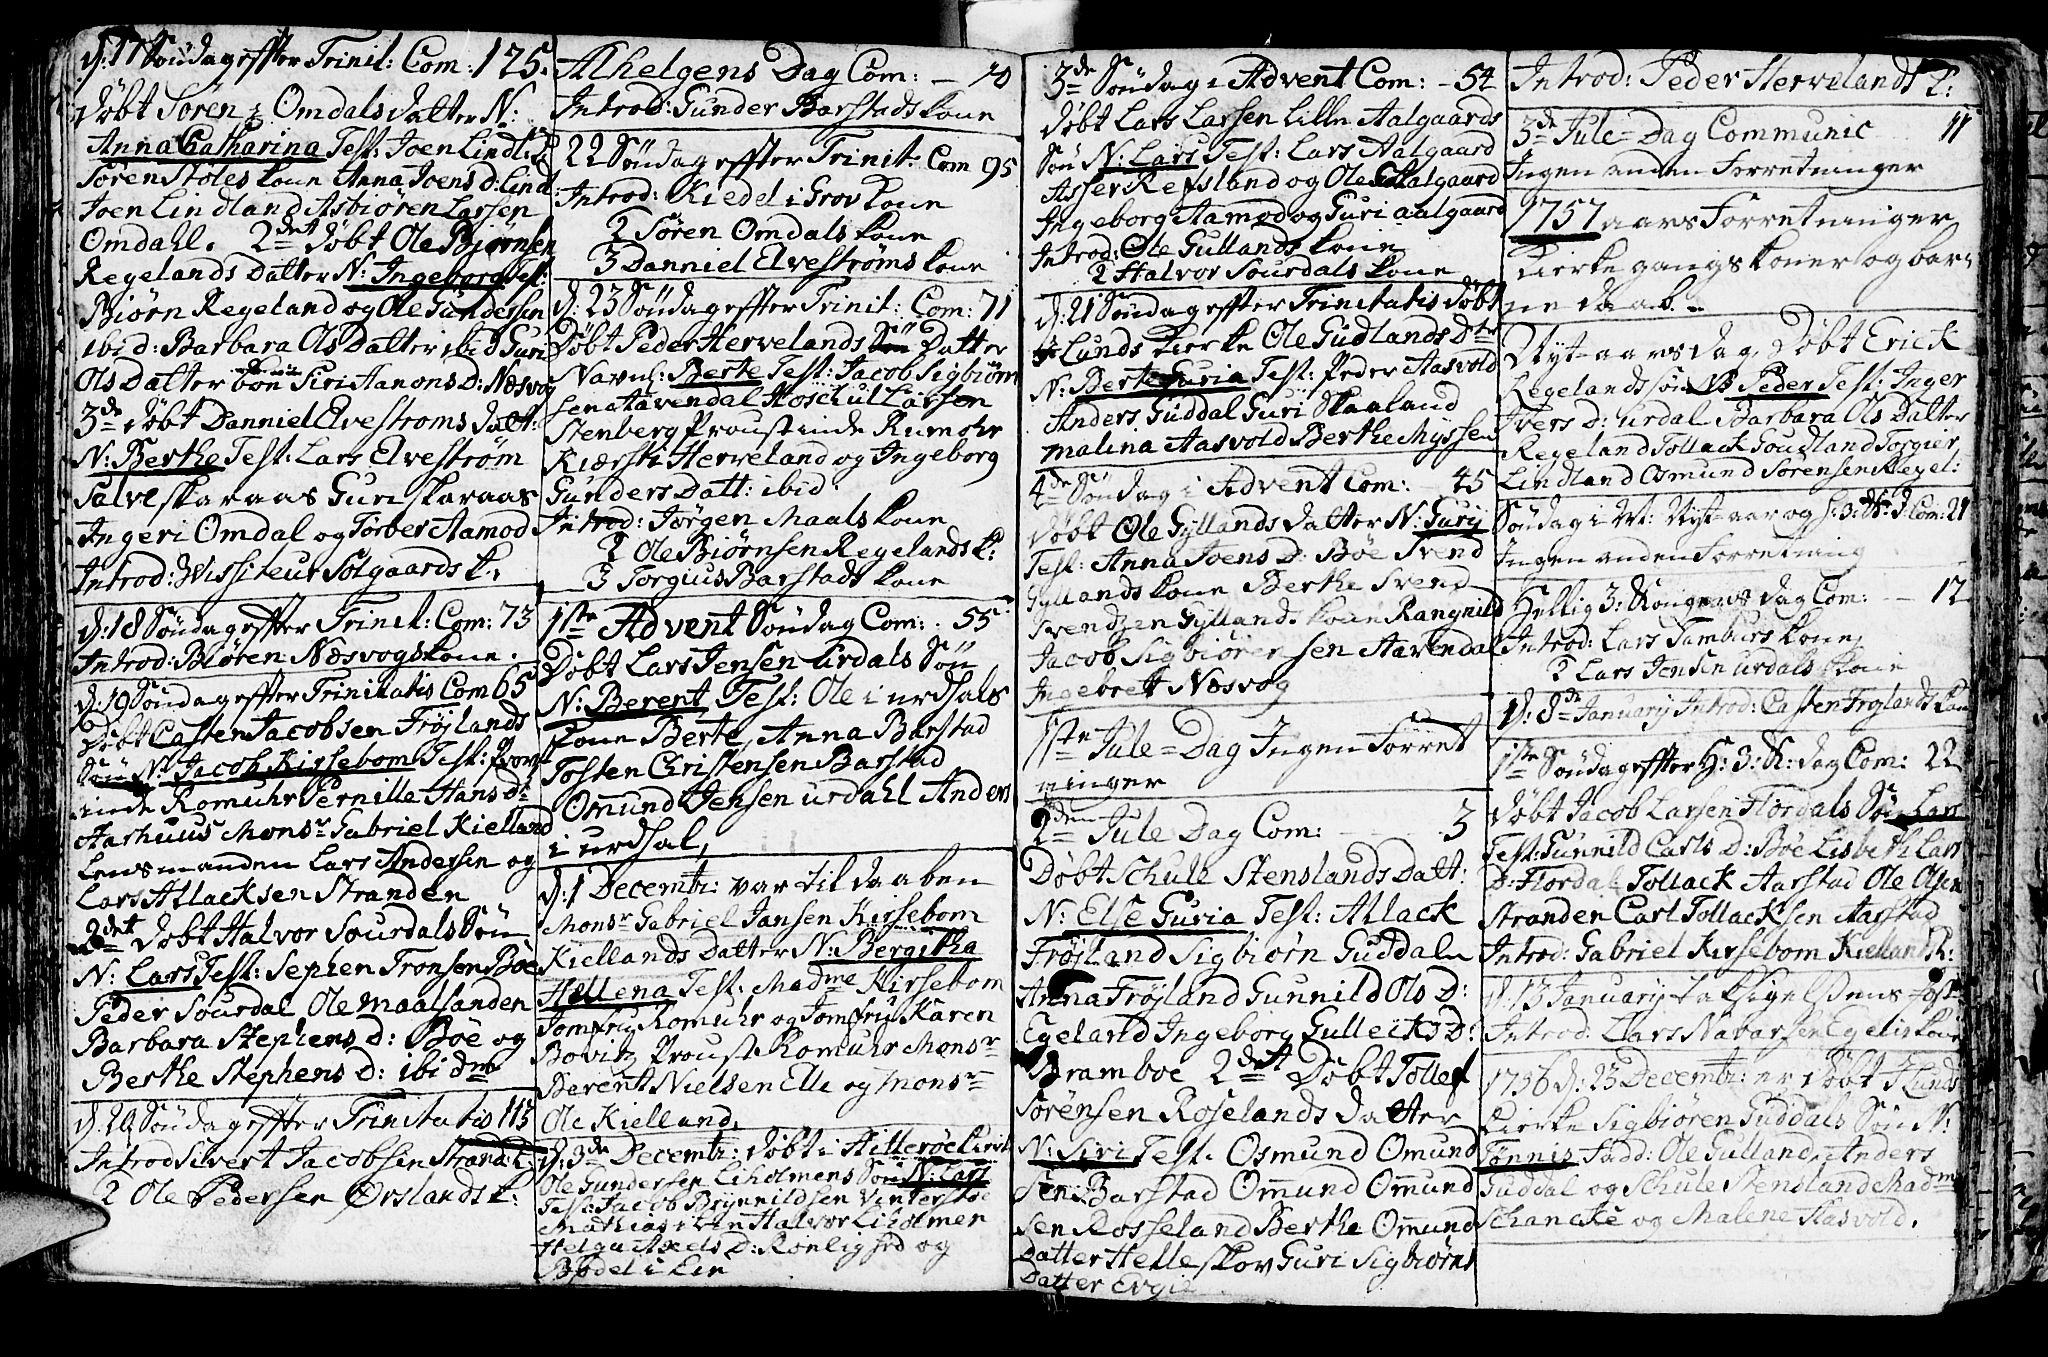 d: 17 Søndag effter Trinit: Com: 125.
døbt Søren Omdals datter N:
Anna Catharina Test: Joen Lindl:
Søren Støles kone Anna Joens D: Lind
Joen Lindland Asbiøren Larsen
Omdahl. 2det døbt Ole Bjørnsen
Regelands Datter N: Ingeborg Test:
Biørn Regeland og Ole Gundersen
ibid: Barbara Ols Datter ibid Guri
Ols Datter Siri Aanons D: Næsvog
3de døbt Danniel Elvestroms datt:
N: Berthe Test: Lars Elvestrøm
Salve skaraas Guri skaraas
Ingeri Omdal og Torber Aamod
Introd: Wissiteur Solgaards k:
d: 18 Søndag effter Trinit: Com: 73
Introd: Biøren Næsvogs kone.
d: 19 Søndag effter Trinitatis Com 65
Døbt Casten Jacobsen Frøjlands
Søn N: Jacob Kirsebom Test: Prou
inde Romuhr Pernille Hans Dt
Aarhuus Monsr Gabriel Kielland
Lensmanden Lars Andersen og
Lars Atlacksen Stranden
2det døbt Halvor Sourdals Søn
N: Lars Test: Sephen Tronsen Bøe
Peder Sourdal Ole Maalsanden
Barbara Stephens D: Bøe og
Berthe Stephens D: ibidm
d. 20 Søndag effter Trinitatis 115
Introd Sivert Jacobsen Strand: k:
2 Ole Pedersen Ørslands k:
Alhelgens Dag Com: — 70
Introd: Gunder Barstads kone
22 Søndag effter Trinit: Com 95
Introd: Kiedel i Grov kone
2 Søren Omdals kone
3 Danniel Elvestroms kone
d: 23 Søndag effter Trinit: Com: 71
Døbt Peder Hervelands Søn Datter
Navnl: Berte Test: Jacob Sigbiørn
sen Aavendal Hoschul Larsen
Stenberg Proustinde Rumohr
Kiersti Herveland og Ingeborg
Gunders Datt: ibid:
Introd: Jørgen Maals kone
2 Ole Biørnsen Regelands k:
3 Torgius Barstads kone
1ste Advent Søndag Com: 55
Døbt Lars Jensen urdals Søn
N: Berent Test: Ole i urdhals
kone Berte, Anna Barstad
Tosten Christensen Barstad
Omund Jensen urdahl Anders
i urdhal,
d: 1 Decembr: var til daaben
Monsr Gabriel Jansen Kirsebom
Kiellands Datter N: Bergitha
Hellena Test: Madme Kirsebom
Jomfru Romuhr og Jomfru Karen
Bovitz Proust Romuhr Monsr
Berent Nielsen Elle og Monsr
Ole Kielland.
d: 3de Decembr: døbt i Hitterøe kirk
Ole Gundersen Liholmens Søn N: Lars
Test: Jacob Brynnildsen Vinterstøe
Mathias Lien Halvor Liholmen
Helga Axels D: Ronlighed og
Bodel i Lin
3de Søndag i Advent Com: — 54
døbt Lars Larsen Lille Aalgaards
Søn N: Lars Test: Lars Aalgaard
Asser Refsland og Ole Aalgaard
Ingeborg Aamod og Guri aalgaard
Introd: Ole Gullands kone
2 Halvor Sourdals kone
d: 21 Søndag effter Trinitatis døbt
i Lunds kierke Ole Gudlands Dtr
N: Berte Guria Test: Peder Aasvold
Anders Guddal Guri Skaaland
Malina Aasvold Berthe Nyssen
4de Søndag i Advent Com: — 45
døbt Ole Gyllands datter N: Gurij
Test: Anna Joens D: Bøe Svend
Gyllands kone Berthe Svend
Svendsen Gylland. kone Rangnild
Jacob Sigbiørensen Aarendal
Ingebrett Næsvog
1ste Jule=Dag Ingen Forret
ninger
2den Jule Dag Com: — 3
Døbt Schule Stenslands Datt:
N: Else Guria Test: Atlack
Frøjland Sigbiørn Guddalen
Anna Frøjland Gunnild Ols D:
Egeland Ingeborg Gulleicks D:
Bramboe 2det Døbt Tollef
Sørensen Roselands datter
N: Siri Test: Osmund Omund
sen Barstad Omund Omund
sen Rosseland Berthe Omund
Datter Helleskov Guri Sigbiørns
Datter Evje
Introd: Peder Hervelands k:
3de Jule=Dag Communic 11
Ingen anden Forretninger
1757 aars Forretninger
kierkegangs koner og bar
ne daab.
Nyt-aarsdag, Døbt Erick
Regelands søn N: Peder Test: Inger
Ivers D: urdal Barbara Ols Datter
Regeland Tollack Goudland Torgier
Lindland Osmund Sørensen Regel:
Søndag i M: Nyt-aar og H: 3: K: D Com: 21
Ingen anden Forretning
Hellig 3: Kongers dag Com: — 12
Introd: Lars Tamburs kone
2 Lars Jensen urdals kone
d: 8de January Introd: Casten Frøjlands kone
1ste Søndag effter H: 3: K: dag Com: 22
døbt Jacob Larsen Flordals Søn Lars
Test: Gunnild Carls D: Bøe Lisbeth Lars
D: Flordal Tollack Aarstad Ole Olsen
Stranden Carl Tollacksen Aarstad
Introd: Gabriel Kirsebom Kiellands k:
d: 13 Januarij taksigelsens fest
Introd: Lars Navarsen Egelis kone
1756 d: 23 Decembr: er døbt i Lunds
kierke Sigbiøren Guddals Søn N:
Tønnis Fadd: Ole Gulland, Anders
Guddal og Schule Stensland Madme
Schancke og Malene Aasvold.